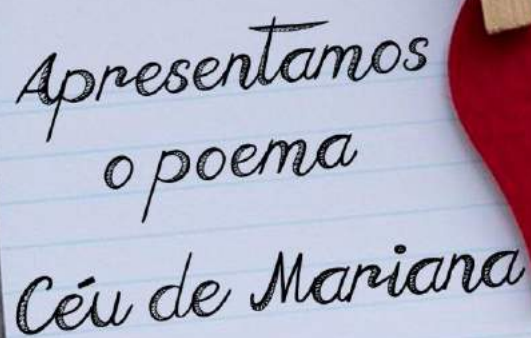 Apresentamos
o poema
Céu de Mariana